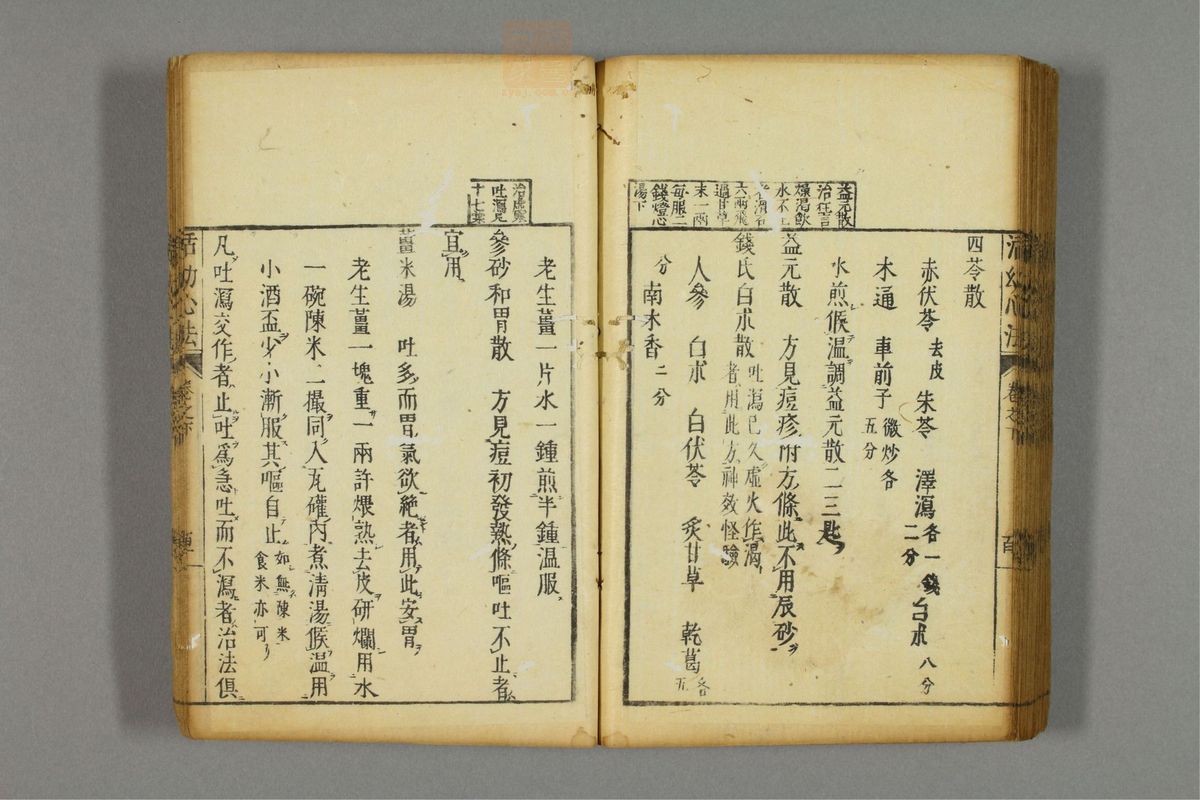 益元散
治狂言
燥渴飲
水不止
者滑石
六兩飛
過甘草
末一兩
每服二
錢燈心
湯下
四苓散
赤伏苓去皮 朱苓 澤瀉各一錢二分 白朮八分
木通 車前子微炒各五分
水煎候温調益元散二三匙
益元散 方見痘疹附方條此不用辰砂
錢氏白朮散吐瀉已久虛火作渴者用此方神效怪驗
人參 白朮 白伏苓 炙甘草 乾葛各五
分 南木香二分
治虛寒
吐瀉見
十七葉
老生薑一片水一鍾煎半鍾温服
參砂和胃散 方見痘初發熱條嘔吐不止者
宜用
薑米湯 吐多而胃氣欲絶者用此安胃
老生薑一塊重一兩許煨熟去皮研爛用水
一碗陳米一撮同入瓦礶內煮清湯候温用
小酒盃少小漸服其嘔自止如無陳米食米亦可
凡吐瀉交作者止吐爲急吐而不瀉者治法俱
活幼心法
卷之下